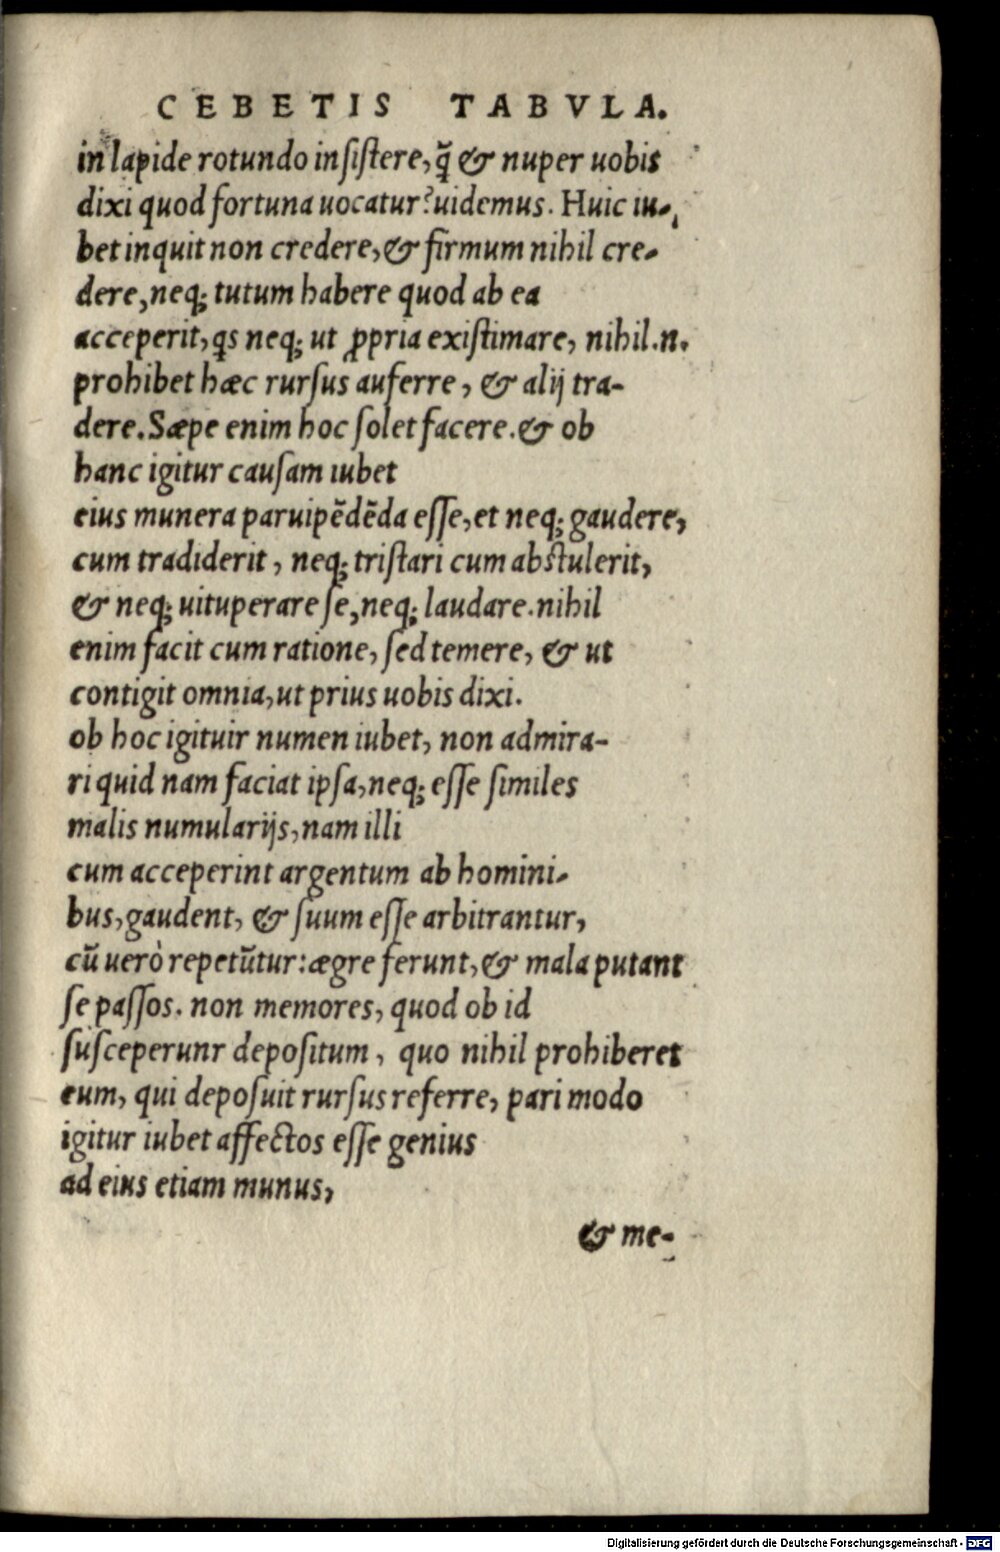 CEBETIS TABVLA.
in lapide rotundo insistere, q̃ & nuper uobis
dixi quod fortuna uocatur? uidemus. Huic iu-
bet inquit non credere, & firmum nihil cre-
dere, neq; tutum habere quod ab ea
acceperit, qs neq; ut ꝓpria existimare, nihil .n.
prohibet hæc rursus auferre, & alij tra-
dere. Sæpe enim hoc solet facere. & ob
hanc igitur causam iubet
eius munera paruipẽdẽda esse, et neq; gaudere,
cum tradiderit, neq; tristari cum abstulerit,
& neq; uituperare se, neq; laudare. nihil
enim facit cum ratione, sed temere, & ut
contigit omnia, ut prius uobis dixi.
ob hoc igituir numen iubet, non admira-
ri quid nam faciat ipsa, neq; esse similes
malis numularijs, nam illi
cum acceperint argentum ab homini-
bus, gaudent, & suum esse arbitrantur,
cũ uerò repetũtur: ægre ferunt, & mala putant
se passos. non memores, quod ob id
susceperunr depositum, quo nihil prohiberet
eum, qui deposuit rursus referre, pari modo
igitur iubet affectos esse genius
ad eius etiam munus,
& me-
Digitalisierung gefördert durch die Deutsche Forschungsgemeinschaft - DFG